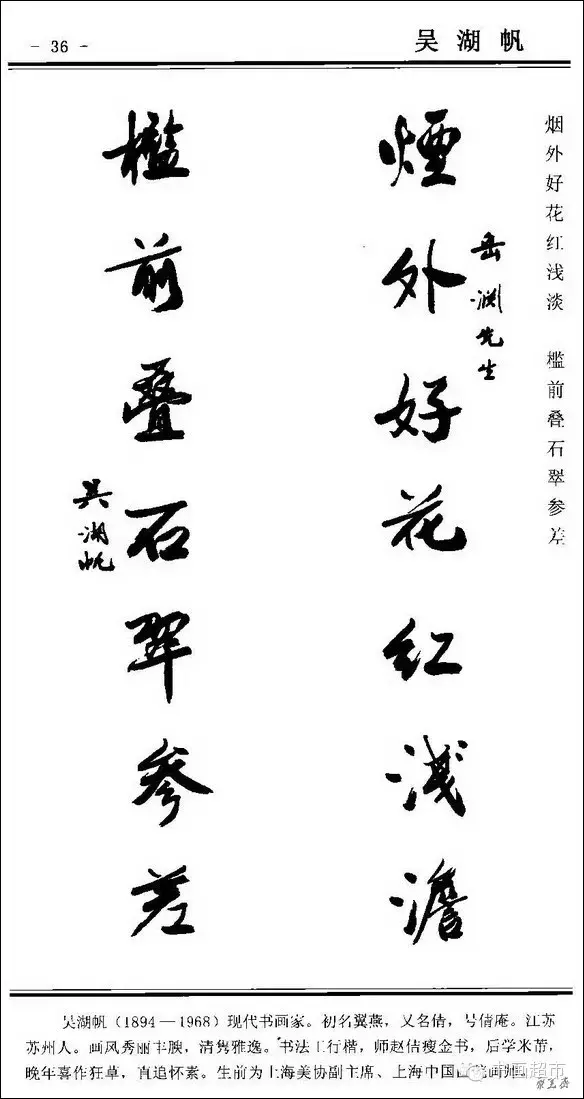 - 36 -
吴湖帆
烟外好花红浅淡 槛前叠石翠参差
岳渊先生
煙外好花红浅澹
檻前叠石翠参差
吴湖帆
吴湖帆（1894—1968）现代书画家。初名翼燕，又名倩，号倩庵。江苏
苏州人。画风秀丽丰腴，清隽雅逸。书法工行楷，师赵佶瘦金书，后学米芾，
晚年喜作狂草，直追怀素。生前为上海美协副主席、上海中国画院画师。
书画超市